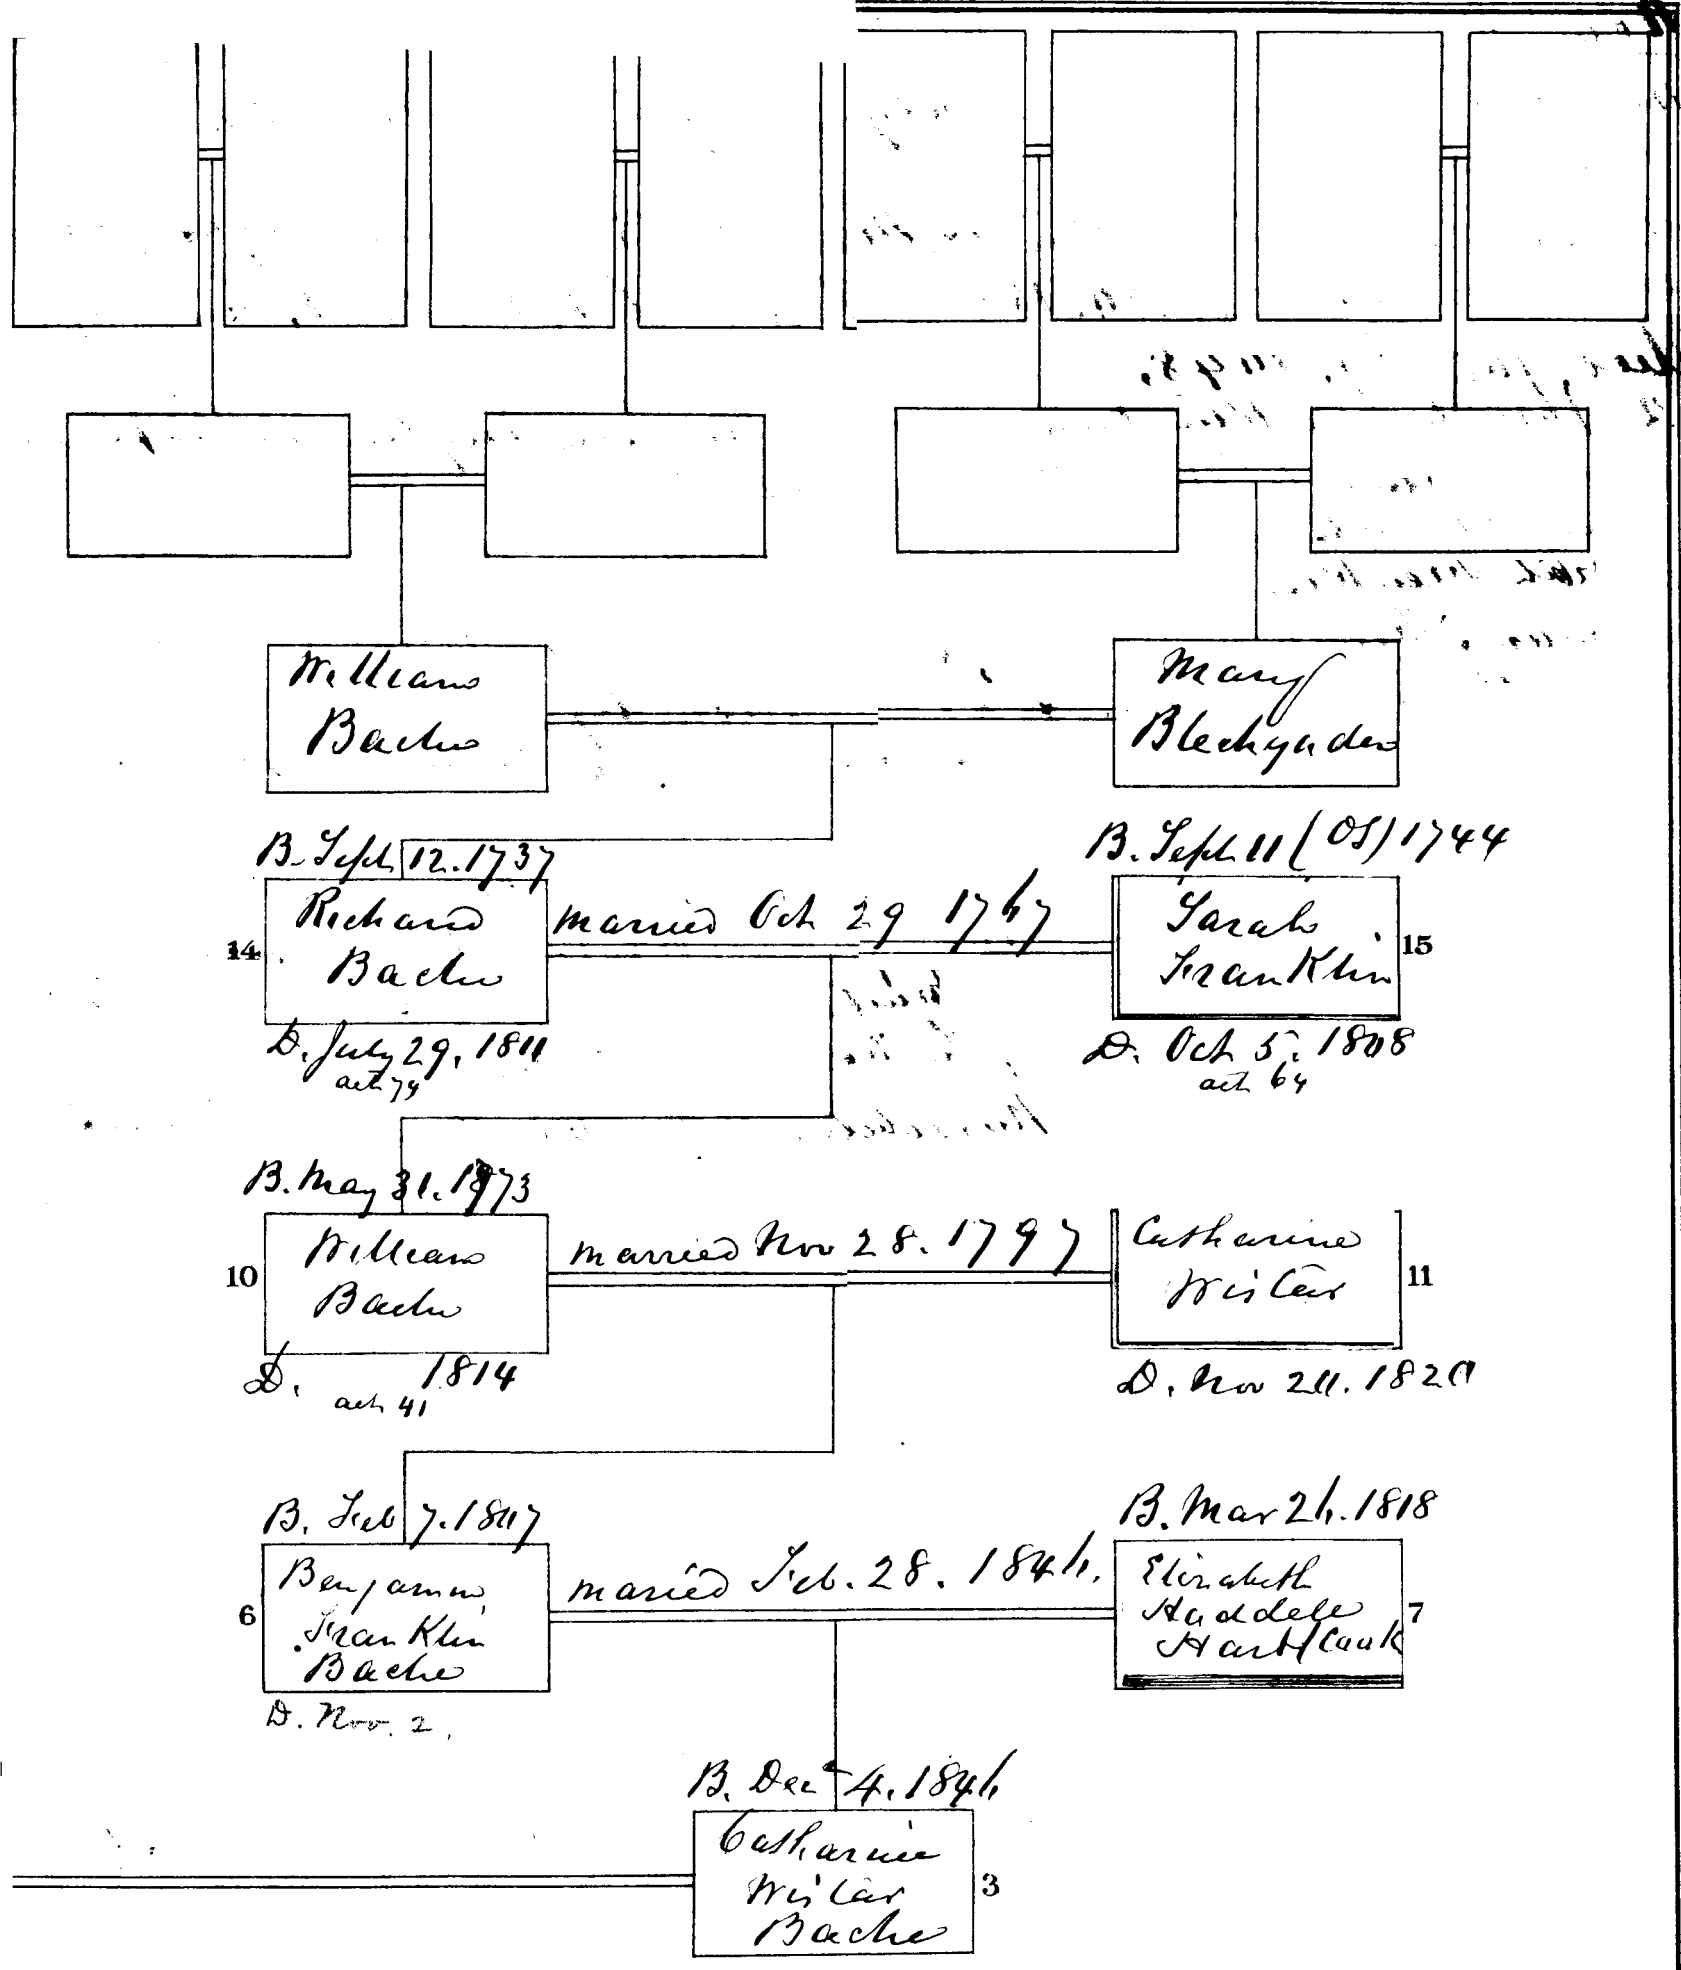 William
Bache
Mary
Bleckynden
B. Sept 12. 1737
B. Sept 11 (OS) 1744
14
Richard
Bache
married Oct 29 1767
Sarah
Franklin
15
D. July 29, 1811
aet 74
D. Oct 5. 1808
aet 64
B. May 31. 1773
10
William
Bache
married Nov 28. 1797
Catharine
Wistar
11
D. 1814
aet 41
D. Nov 20. 1820
B. Feb 7. 1807
B. Mar 26. 1818
6
Benjamin
Franklin
Bache
maried Feb. 28. 1846.
Elizabeth
Haddele
7
D. Nov. 2.
B. Dec 4. 1846
Catharine
Wistar
Bache
3